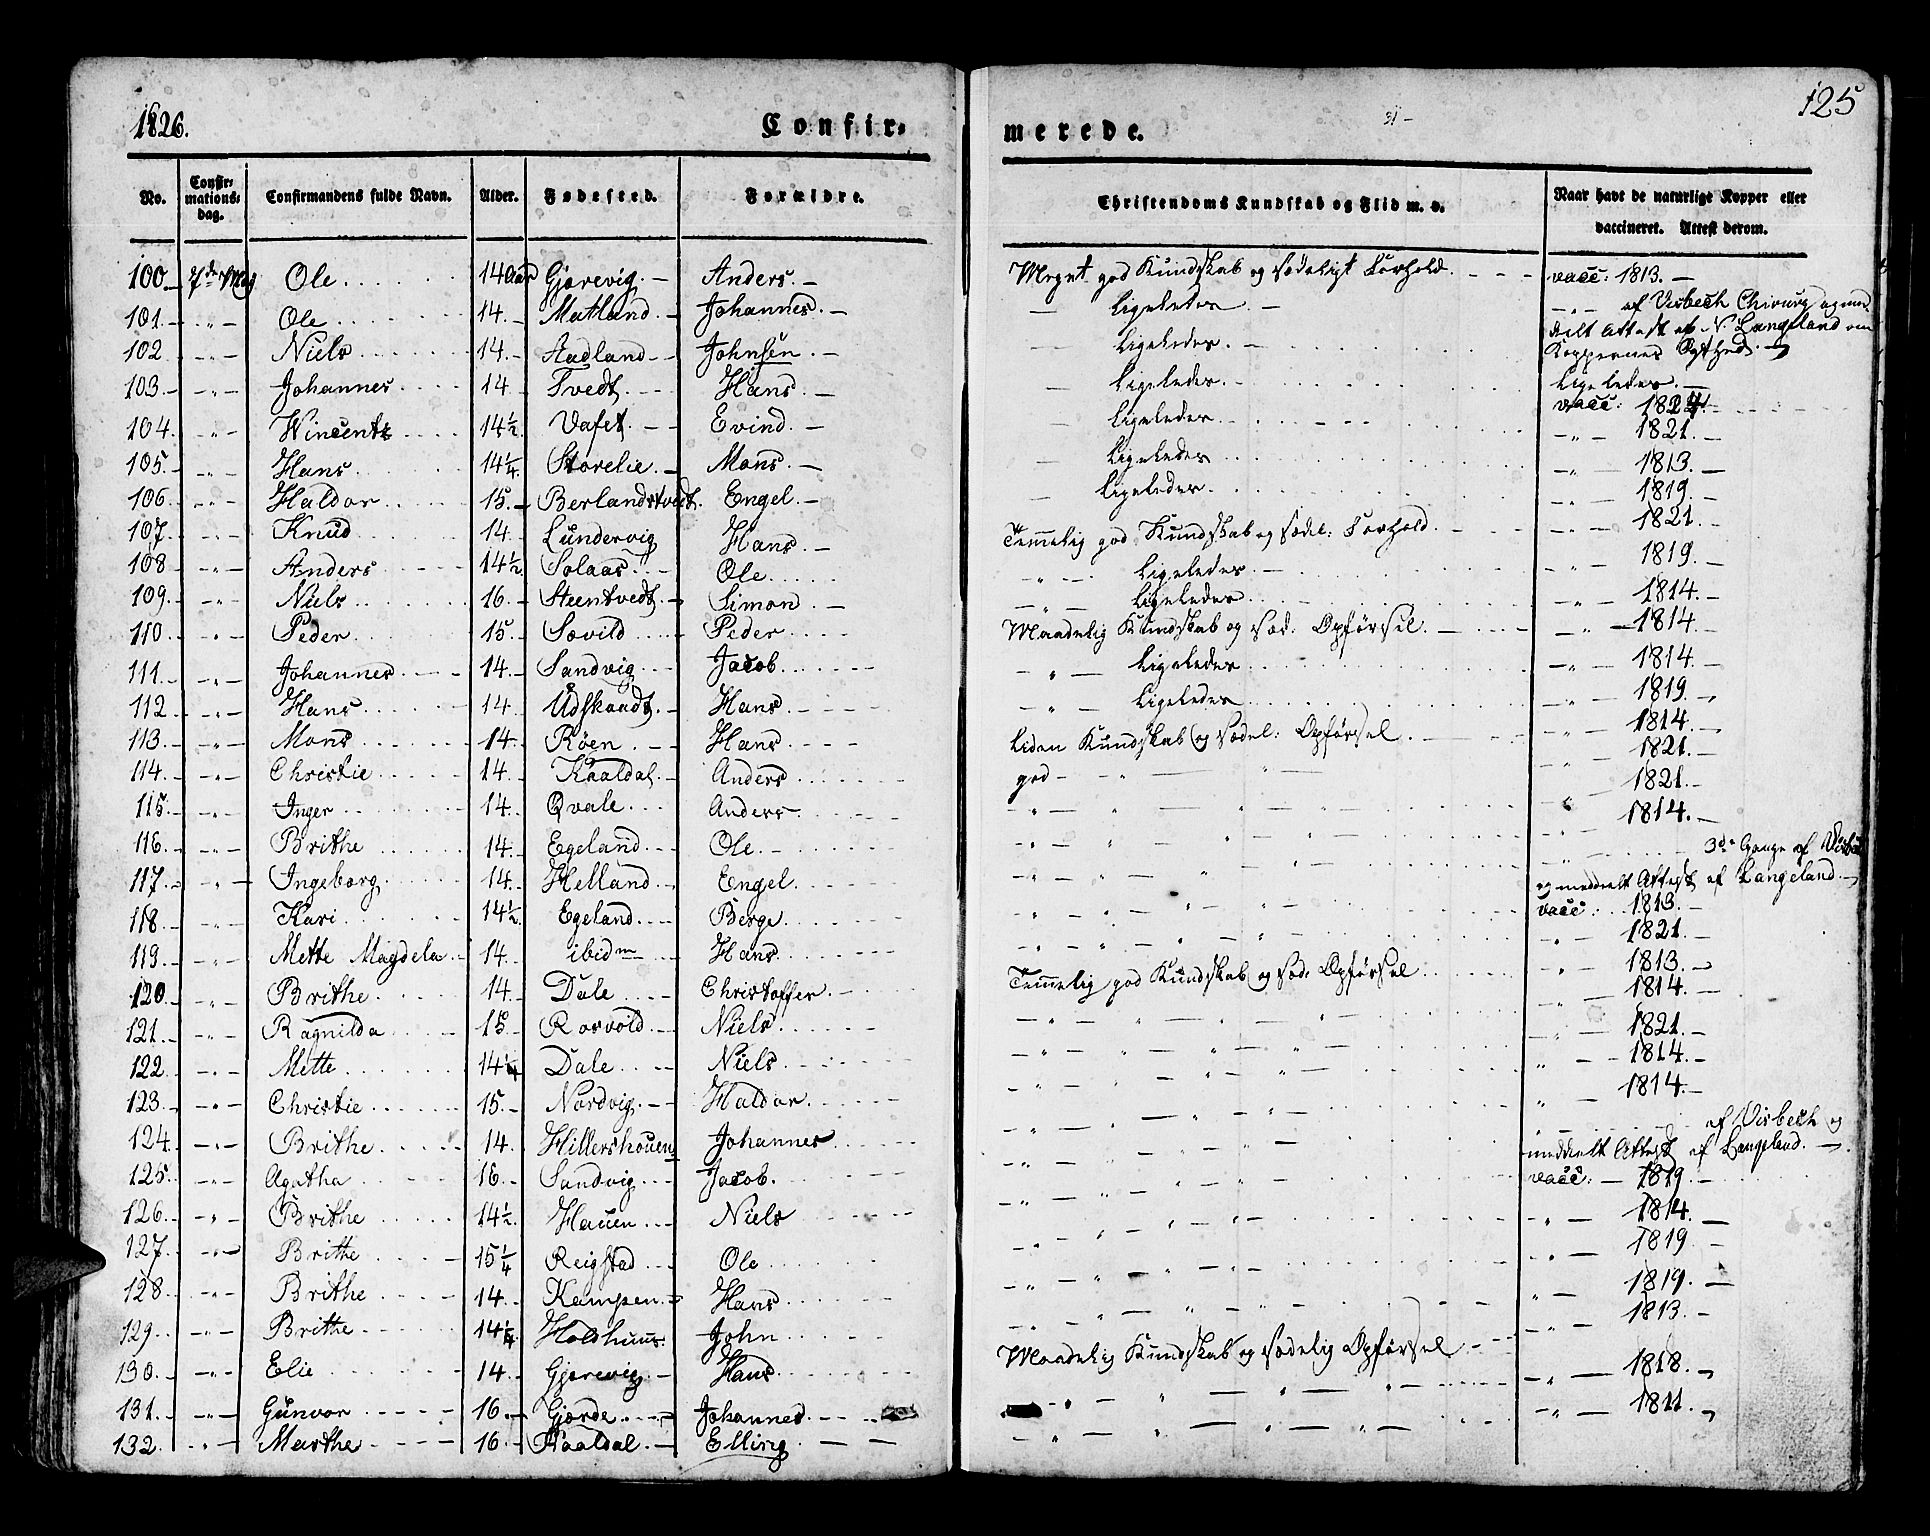 1826.
Confir-
No.
Confir-
mations-
dag.
Confirmandens fulde Navn.
Alder.
Fødested.
Forældre.
100. 7de May Ole 14 Aar Gjorevig. Anders.
101. Ole 14. Matland Johannes.
102 Niels 14. Aadland Johnsen.
103. Johannes 14 Tvedt. Hans.
104. Wincentz 14½ Vafet. Evind.
105. Hans 14¼ Storelie. Mons.
106 Haldor 15. Berlandstvedt. Engel.
107. Knud 14. Lundervig Hans.
108 Anders 14½ Solaas Ole
109. Niels 16. Steentvedt. Simon.
110. Peder 15. Sævild Peder
111. Johannes 14. Sandvig Jacob.
112 Hans 14 Udskaadt. Hans.
113. Mons 14. Røen. Hans
114. Christie 14. Kaaldal. Anders
115. Inger 14. Qvale. Anders
116. Brithe 14. Egeland. Ole.
117. Ingeborg. 14. Helland. Engel.
118. Kari 14½ Egeland. Berge.
119. Mette Magdela 14. ibidm Hans
120. Brithe 14. Dale Christoffer.
121. Ragnilda 15. Rosvold. Niels
122. Mette 14¼ Dale Niels
123. Christie 15. Nordvig. Haldor.
124. Brithe 14. Hillershouen Johannes
125. Agatha 16. Sandvig Jacob.
126. Brithe 14½ Hauen Niels
127. Brithe 15¼ Reigstad Ole
128. Brithe 14. Kampen. Hans
129. Brithe 14¼ Holdhuus. John
130. Elie 14. Gjorevig. Hans
131. Gunvor 16. Gjerde Johannes
132. Marthe 16. Kaaldal. Elling
125
merede.
Christendoms Kundskab og Flid m. v.
Naar havt de naturlige Kopper eller
vaccineret. Attest derom.
Meget god Kundskab og sædeligt Forhold. vacc: 1813.
Ligeledes af Visbech Chirurg og med-
Ligeledes. deelt Attest af N. Langeland om
Koppernes Ægthed.
Ligeledes. Lige ledes.
Ligeledes vacc: 1824.
Ligeledes 1821.
Ligeledes. 1813.
1819.
Temmelig god Kundskab og sædel: Forhold. 1821.
Ligeledes 1819.
Ligeledes 1814.
Maadelig Kundskab og sæd: Opførsel. 1814.
Ligeledes 1814.
Ligeledes 1819.
Liden Kundskab og sædel: Opførsel 1814.
god 1821.
1821.
1814.
3de Gange af Visbech
og meddeelt Attest af Langeland.
vacc: 1813.
1821.
Temmelig god Kundskab og sæd: Opførsel 1813.
1814.
1821.
1814.
1814.
af Visbech og
meddeelt Attest af Langeland.
vacc: 1819
1814.
1819
1819.
1813.
Maadelig Kundskab og sædelig Opførsel
1818.
1811.